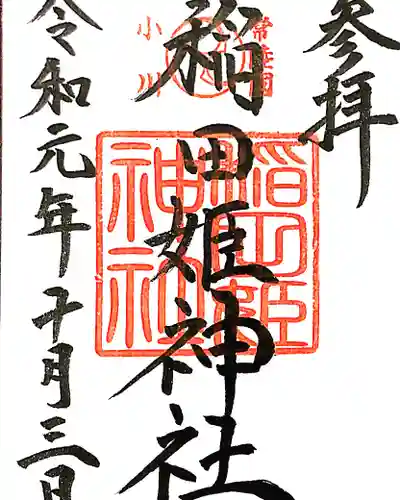 参拝
常陸國
小川
稲田姫神社
稲田姫
神社
令和元年十月三日